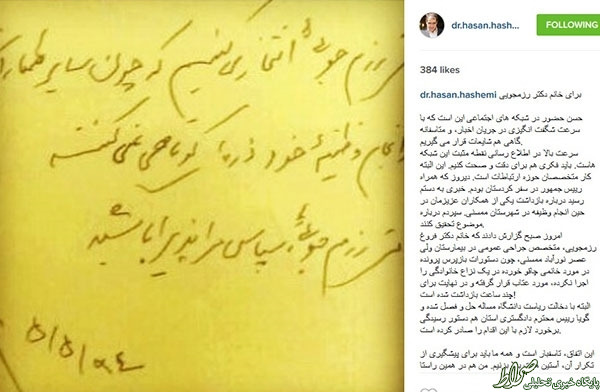 dr.hasan.hash...
FOLLOWING
384 likes
dr.hasan.hashemi برای خانم دکتر رزمجویی
حسن حضور در شبکه های اجتماعی این است که با
سرعت شگفت انگیزی در جریان اخبار، و متاسفانه
گاهی هم شایعات قرار می گیریم.
سرعت بالا در اطلاع رسانی نقطه مثبت این شبکه
هاست. باید فکری هم برای دقت و صحت کنیم. این البته
کار متخصصان حوزه ارتباطات است. دیروز که همراه
رییس جمهور در سفر کردستان بودم. خبری به دستم
رسید درباره بازداشت یکی از همکاران عزیزمان در
حین انجام وظیفه در شهرستان ممسنی. سپردم درباره
موضوع تحقیق کنند.
امروز صبح گزارش دادند که خانم دکتر فروغ
رزمجویی، متخصص جراحی عمومی در بیمارستان ولی
عصر نورآباد ممسنی، چون دستورات بازپرس پرونده
در مورد خانمی چاقو خورده در یک نزاع خانوادگی را
اجرا نکرده، مورد عتاب قرار گرفته و در نهایت برای
چند ساعت بازداشت شده است!
البته با دخالت ریاست دانشگاه مساله حل و فصل شده و
گویا رییس محترم دادگستری استان هم دستور رسیدگی
برخورد لازم با این اقدام را صادر کرده است.
این اتفاق، تاسفبار است و همه ما باید برای پیشگیری از
تکرار آن، آستین بزنیم. من هم در همین راستا
صراط
پایگاه خبری تحلیلی
رزم جوئی انتظار می کنیم که چون سایر
انجام وظیفهٔ خود ذره ای کوتاهی نمی کنند
رزم جوئی سپاس مرا پذیرا باشید
۹۴/۵/۵